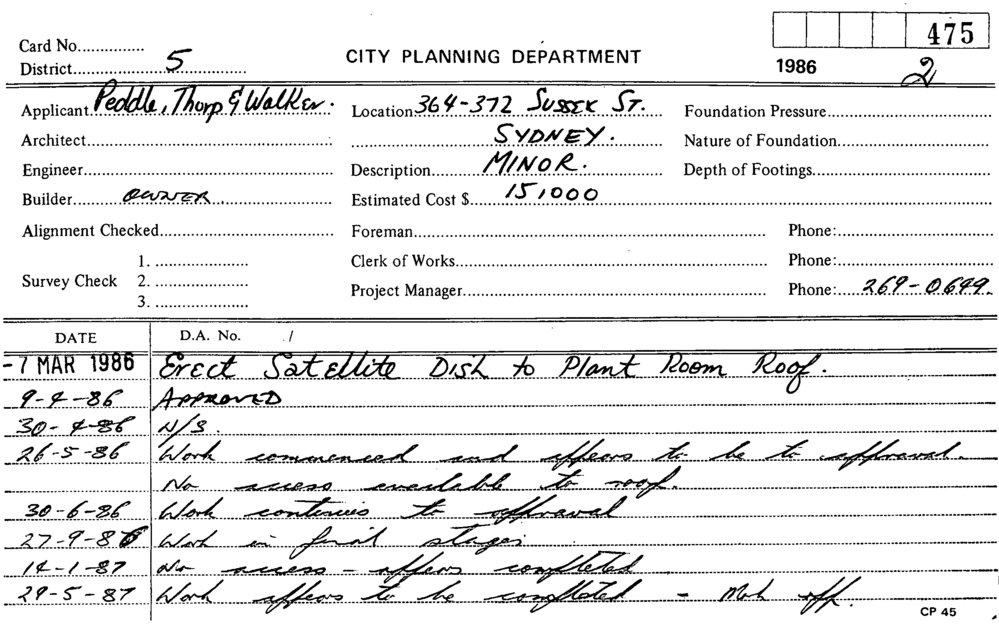 475
Card No...............
District.................5.................
CITY PLANNING DEPARTMENT
1986 2
Applicant Peddle, Thorp & Walker. Location 364-372 SUSSEX ST. Foundation Pressure.................
Architect................. SYDNEY. Nature of Foundation.................
Engineer................. Description MINOR. Depth of Footings.................
Builder OWNER Estimated Cost $ 15,000
Alignment Checked................. Foreman................. Phone:.................
1. .................
Clerk of Works................. Phone:.................
Survey Check 2. .................
Project Manager................. Phone: 269-0699.
3. .................
DATE D.A. No. /
-7 MAR 1986 Erect Satellite Dish to Plant Room Roof.
9-4-86 APPROVED
30-4-86 N/S.
26-5-86 Work commenced and appears to be to approval.
No access available to roof.
30-6-86 Work continues to approval
27-9-86 Work in final stages
14-1-87 No access - appears completed
29-5-87 Work appears to be completed - Mark off.
CP 45